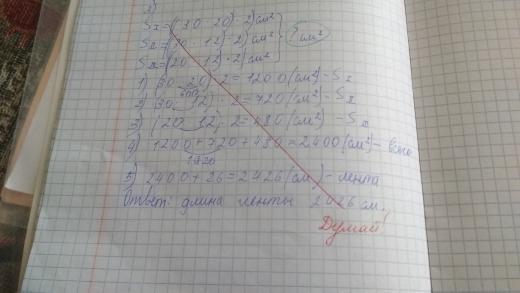 2)
S_I = (30 · 20) · 2) см²
S_II = (30 · 12) · 2) см²
S_III = (20 · 12) · 2) см²
? см²
1) (30 · 20) · 2 = 1200 (см²) – S_I
600
2) (30 · 12) · 2 = 720 (см²) – S_II
3) (20 · 12) · 2 = 480 (см²) – S_III
4) 1200 + 720 + 480 = 2400 (см²) – всего
1920
5) 2400 + 26 = 2426 (см) – лента
Ответ: длина ленты 2426 см.
Думай!